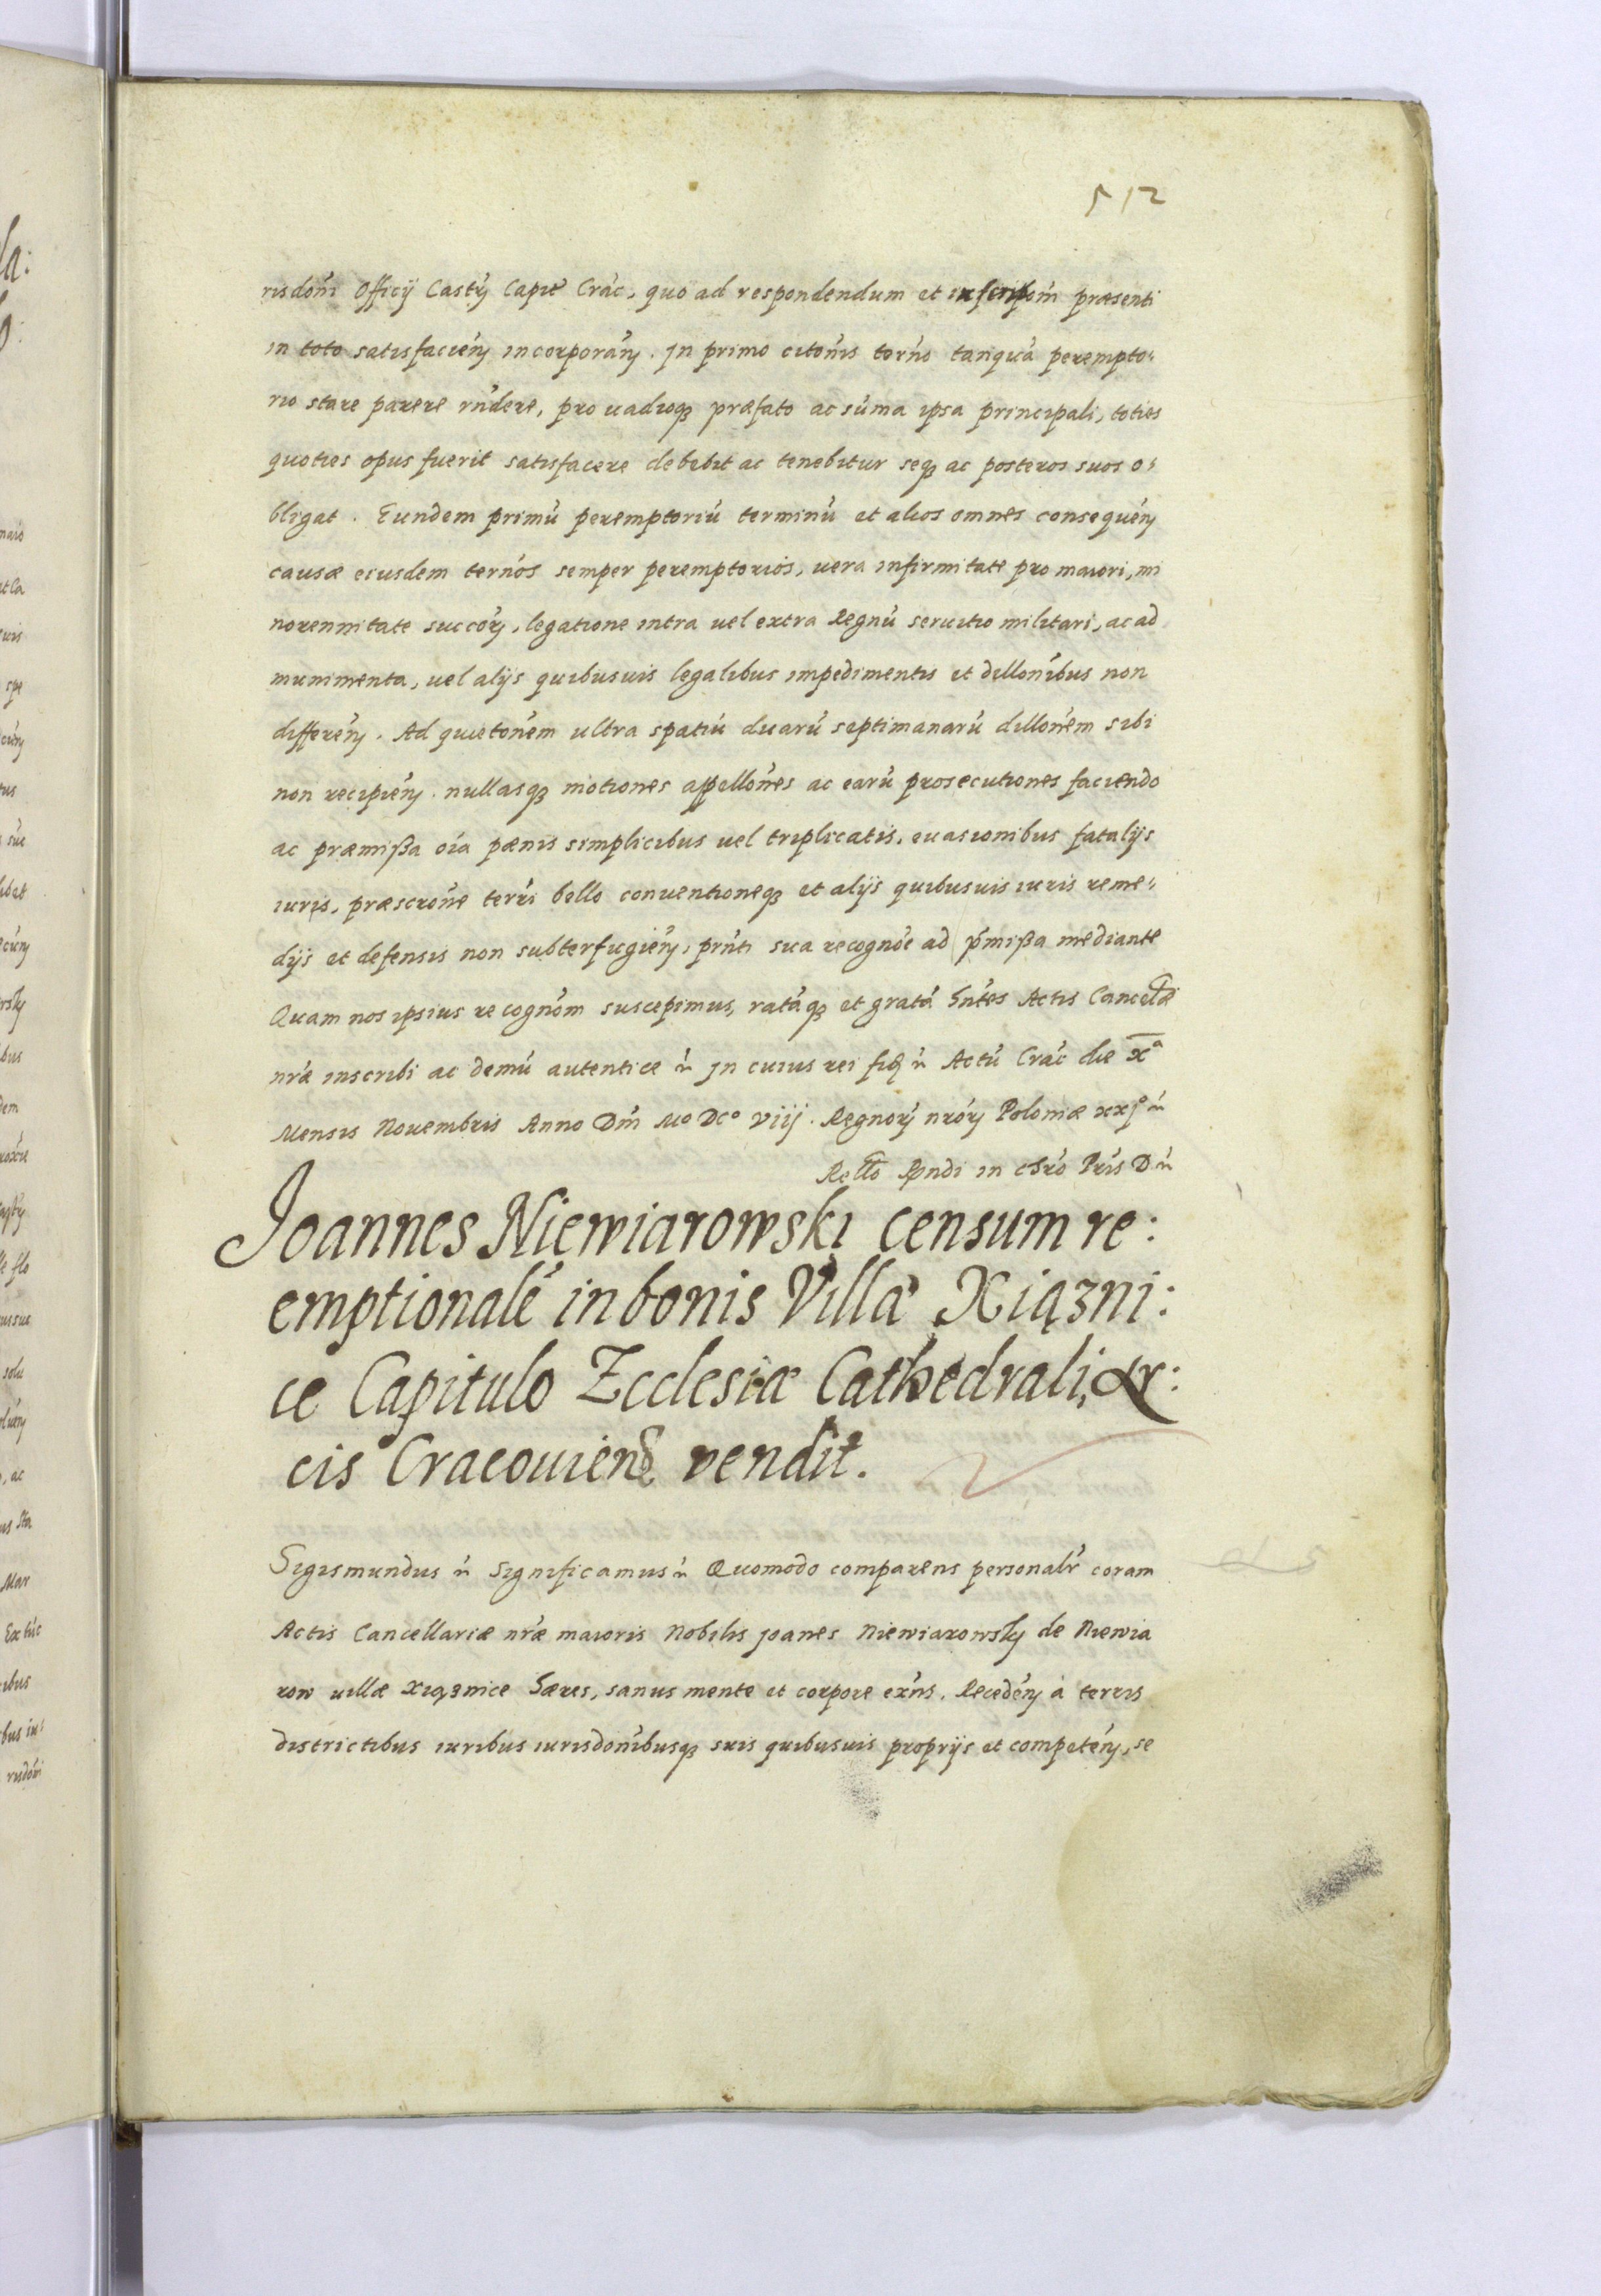 512
risdoni Officij Castri Capit Crac. quo ad respondendum et inscriptoni præsenti
in toto satisfacień incorporań. Jn primo citonis termo tanquá perempto:
rio stare parere rndere, pro uadioq₃ præfato ac súma ipsa principali, toties
quoties opus fuerit satisfacere debebit ac tenebitur seq₃ ac posteros suos o:
bligat. Eundem primú peremptoriú terminú et alios omnes consequeń
causæ eiusdem termos semper peremptorios, uera infirmitate pro maiori, mi
norennitate succor, legatione intra uel extra Regnú seruitio militari, ac ad
munimenta, uel alijs quibusuis legalibus impedimentis et dillonibus non
differeń. Ad quietonem ultra spatiú duarú septimanarú dillonem sibi
non recipień. nullasq₃ motiones appellones ac earú prosecutiones faciendo
ac præmißa oia pænis simplicibus uel triplicatis, euasionibus fatalijs
iuris, præscrone terri bello conuentioneq₃ et alijs quibusuis iuris reme:
dijs et defensis non subterfugień, pnti sua recogne ad pmißa mediante
Quam nos ipsius recognom suscepimus, ratáq₃ et gratá hntes Actis Cancellæ
nræ inscribi ac demú autentice etc Jn cuius rei fid etc Actú Crac die xᵃ
Mensis Nouembris Anno Dni Mº DCº viij. Regnor nror Poloniæ xxjº etc
Rello Rndi in chro Pris D etc
Joannes Niewiarowski censum re:
emptionalé in bonis Villæ Xiązni:
ce Capitulo Ecclesiæ Cathedrali, Ar:
cis Cracouien̄ vendit.
Sigismundus etc Significamus etc Quomodo comparens personalr coram
Actis Cancellariæ nræ maioris Nobilis Joanes Niewiarowsky de Niewia
row uillæ Xiąznice hæres, sanus mente et corpore exns. Recedeń à terris
districtibus iuribus iurisdonibusq₃ suis quibusuis proprijs et competeń, se